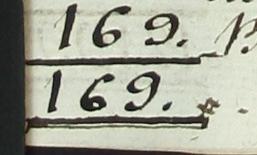 169.
169.